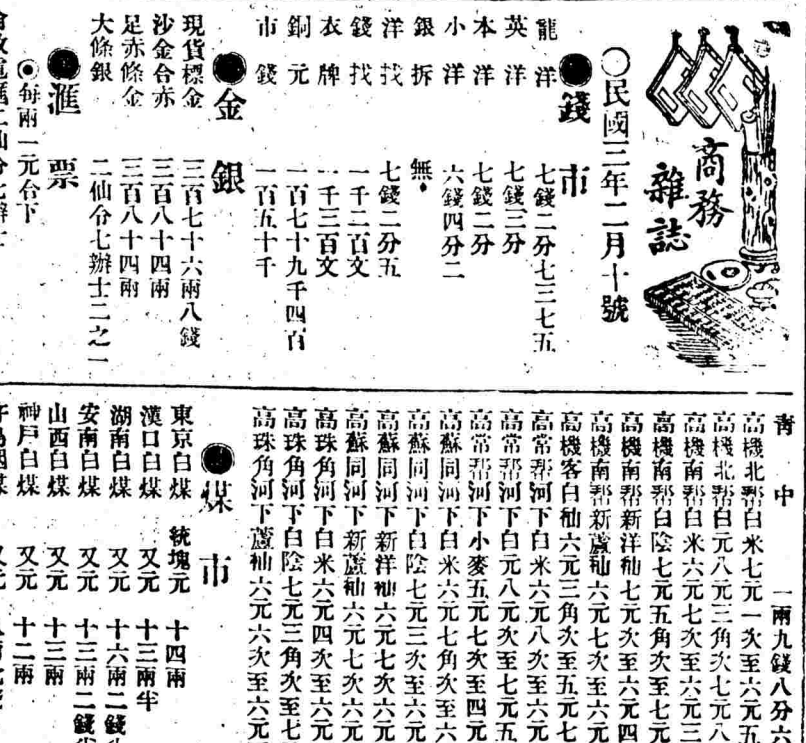 商務
雜誌
〇民國三年二月十號
●錢市
龍洋 七錢二分七三七五
英洋 七錢三分
本洋 七錢二分
小洋 六錢四分二
銀拆 無
洋找 七錢二分五
錢找 一千二百文
衣牌 一千三百文
銅元 一百七十九千四百
市錢 一百五十千
●金銀
現貨標金 三百七十六兩八錢
沙金台赤 三百八十四兩
足赤條金 三百八十四兩
大條銀 二仙令七辦士二之一
●滙票
◉每兩一元台下
青中 一兩九錢八分六
高機北幇白米七元一次至六元五
高機北幇白元八元三角次七元八
高機南幇白米六元七次至六元三
高機南幇白陰七元五角次至七元
高機南幇新洋秈七元次至六元四
高機南幇新蘆秈六元七次至六元
高機客白秈六元三角次至五元七
高常幇河下白米六元八次至六元
高常幇河下白元八元次至七元五
高常幇河下小麥五元七次至四元
高蘇同河下白米六元七角次至六
高蘇同河下白陰七元三次至六元
高蘇同河下新洋秈六元七次六元
高蘇同河下新蘆秈六元七次六元
高珠角河下白米六元四次至六元
高珠角河下白陰七元三角次至七
高珠角河下蘆秈六元六次至六元
●煤市
東京白煤 統塊元 十四兩
漢口白煤 又元 十三兩半
湖南白煤 又元 十六兩二錢
安南白煤 又元 十三兩二錢
山西白煤 又元 十三兩
神戶白煤 又元 十二兩